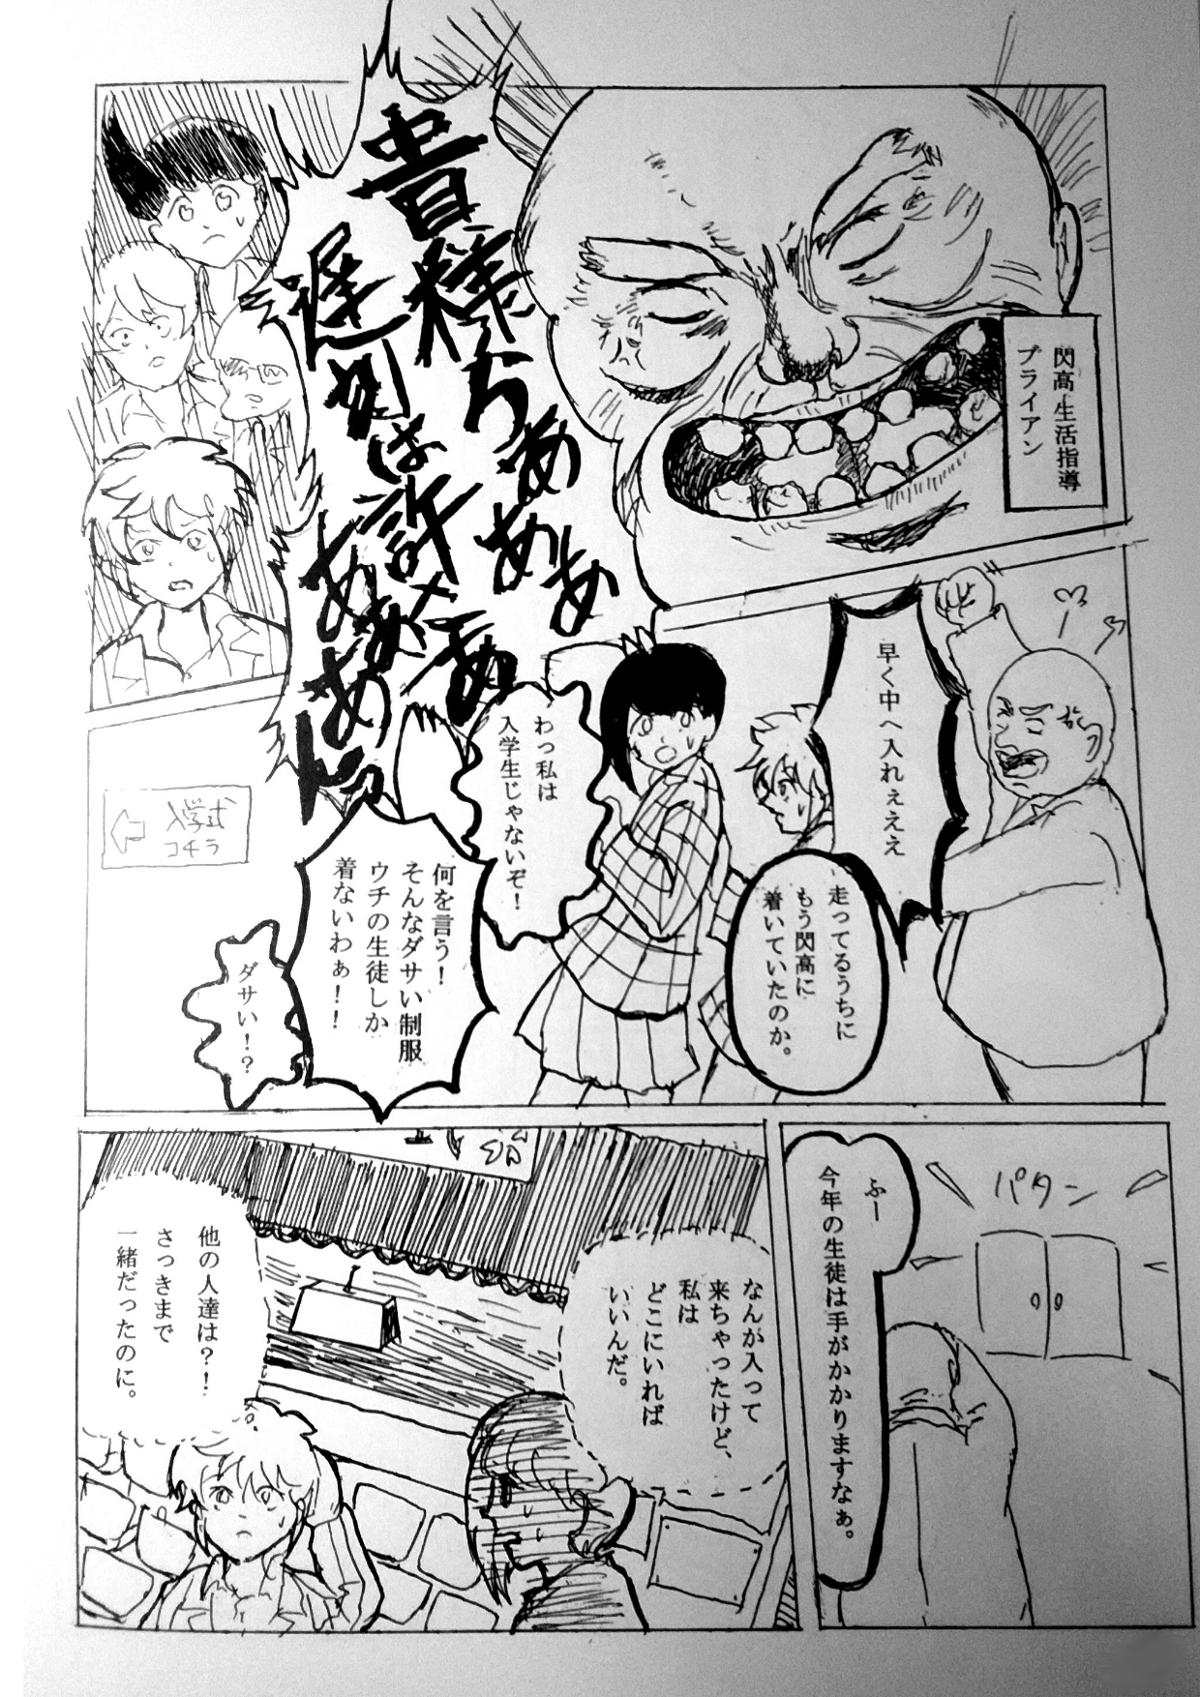 貴様らぁぁぁぁぁ
遅刻は許さぁ
ぁぁぁぁんっ
閃高生活指導
ブライアン
早く中へ入れぇぇぇ
走ってるうちに
もう閃高に
着いていたのか。
わっ私は
入学生じゃないぞ!
何を言う!
そんなダサい制服
ウチの生徒しか
着ないわぁ!!
ダサい!?
入学式
コチラ
パタン
ふー
今年の生徒は手がかかりますなぁ。
なんが入って
来ちゃったけど、
私は
どこにいれば
いいんだ。
他の人達は?!
さっきまで
一緒だったのに。